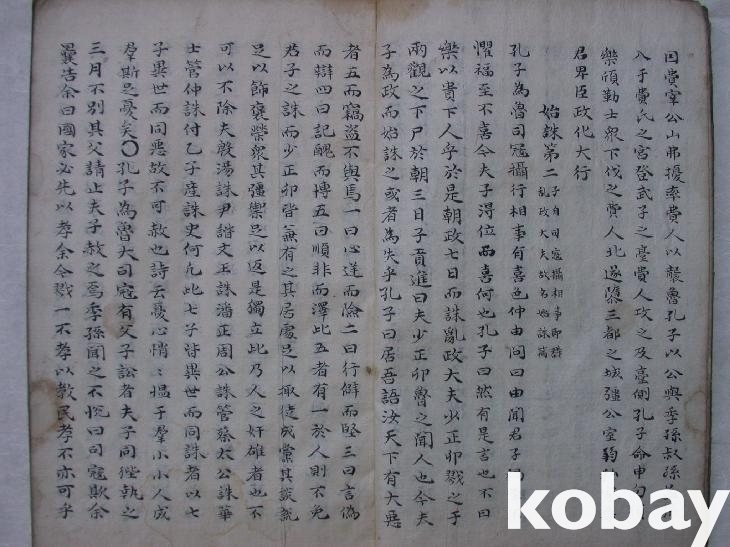 因費宰公山弗擾率費人以襲魯孔子以公與季孫叔孫
入于費氏之宮登武子之臺費人攻之及臺側孔子命申句
樂頎勒士衆下伐之費人北遂隳三都之城彊公室弱
君卑臣政化大行
始誅第二
子自司寇攝相事即誅
亂政大夫故名始誅篇
孔子為魯司寇攝行相事有喜色仲由問曰由聞君子
懼福至不喜今夫子得位而喜何也孔子曰然有是言也不曰
樂以貴下人乎於是朝政七日而誅亂政大夫少正卯戮之于
兩觀之下尸於朝三日子貢進曰夫少正卯魯之聞人也今夫
子為政而始誅之或者為失乎孔子曰居吾語汝天下有大惡
者五而竊盗不與焉一曰心逆而險二曰行僻而堅三曰言偽
而辯四曰記醜而博五曰順非而澤此五者有一於人則不免
君子之誅而少正卯皆兼有之其居處足以掫徒成黨其談說
足以飾褒榮衆其彊禦足以返是獨立此乃人之奸雄者也不
可以不除夫殷湯誅尹諧文王誅潘正周公誅管蔡太公誅華
士管仲誅付乙子産誅史何凡此七子皆異世而同誅者以七
子異世而同惡故不可赦也詩云憂心悄〻慍于羣小小人成
羣斯足憂矣〇孔子為魯大司寇有父子訟者夫子同狴執之
三月不別其父請止夫子赦之焉季孫聞之不悅曰司寇欺余
曩告余曰國家必先以孝余今戮一不孝以教民孝不亦可乎
kobay